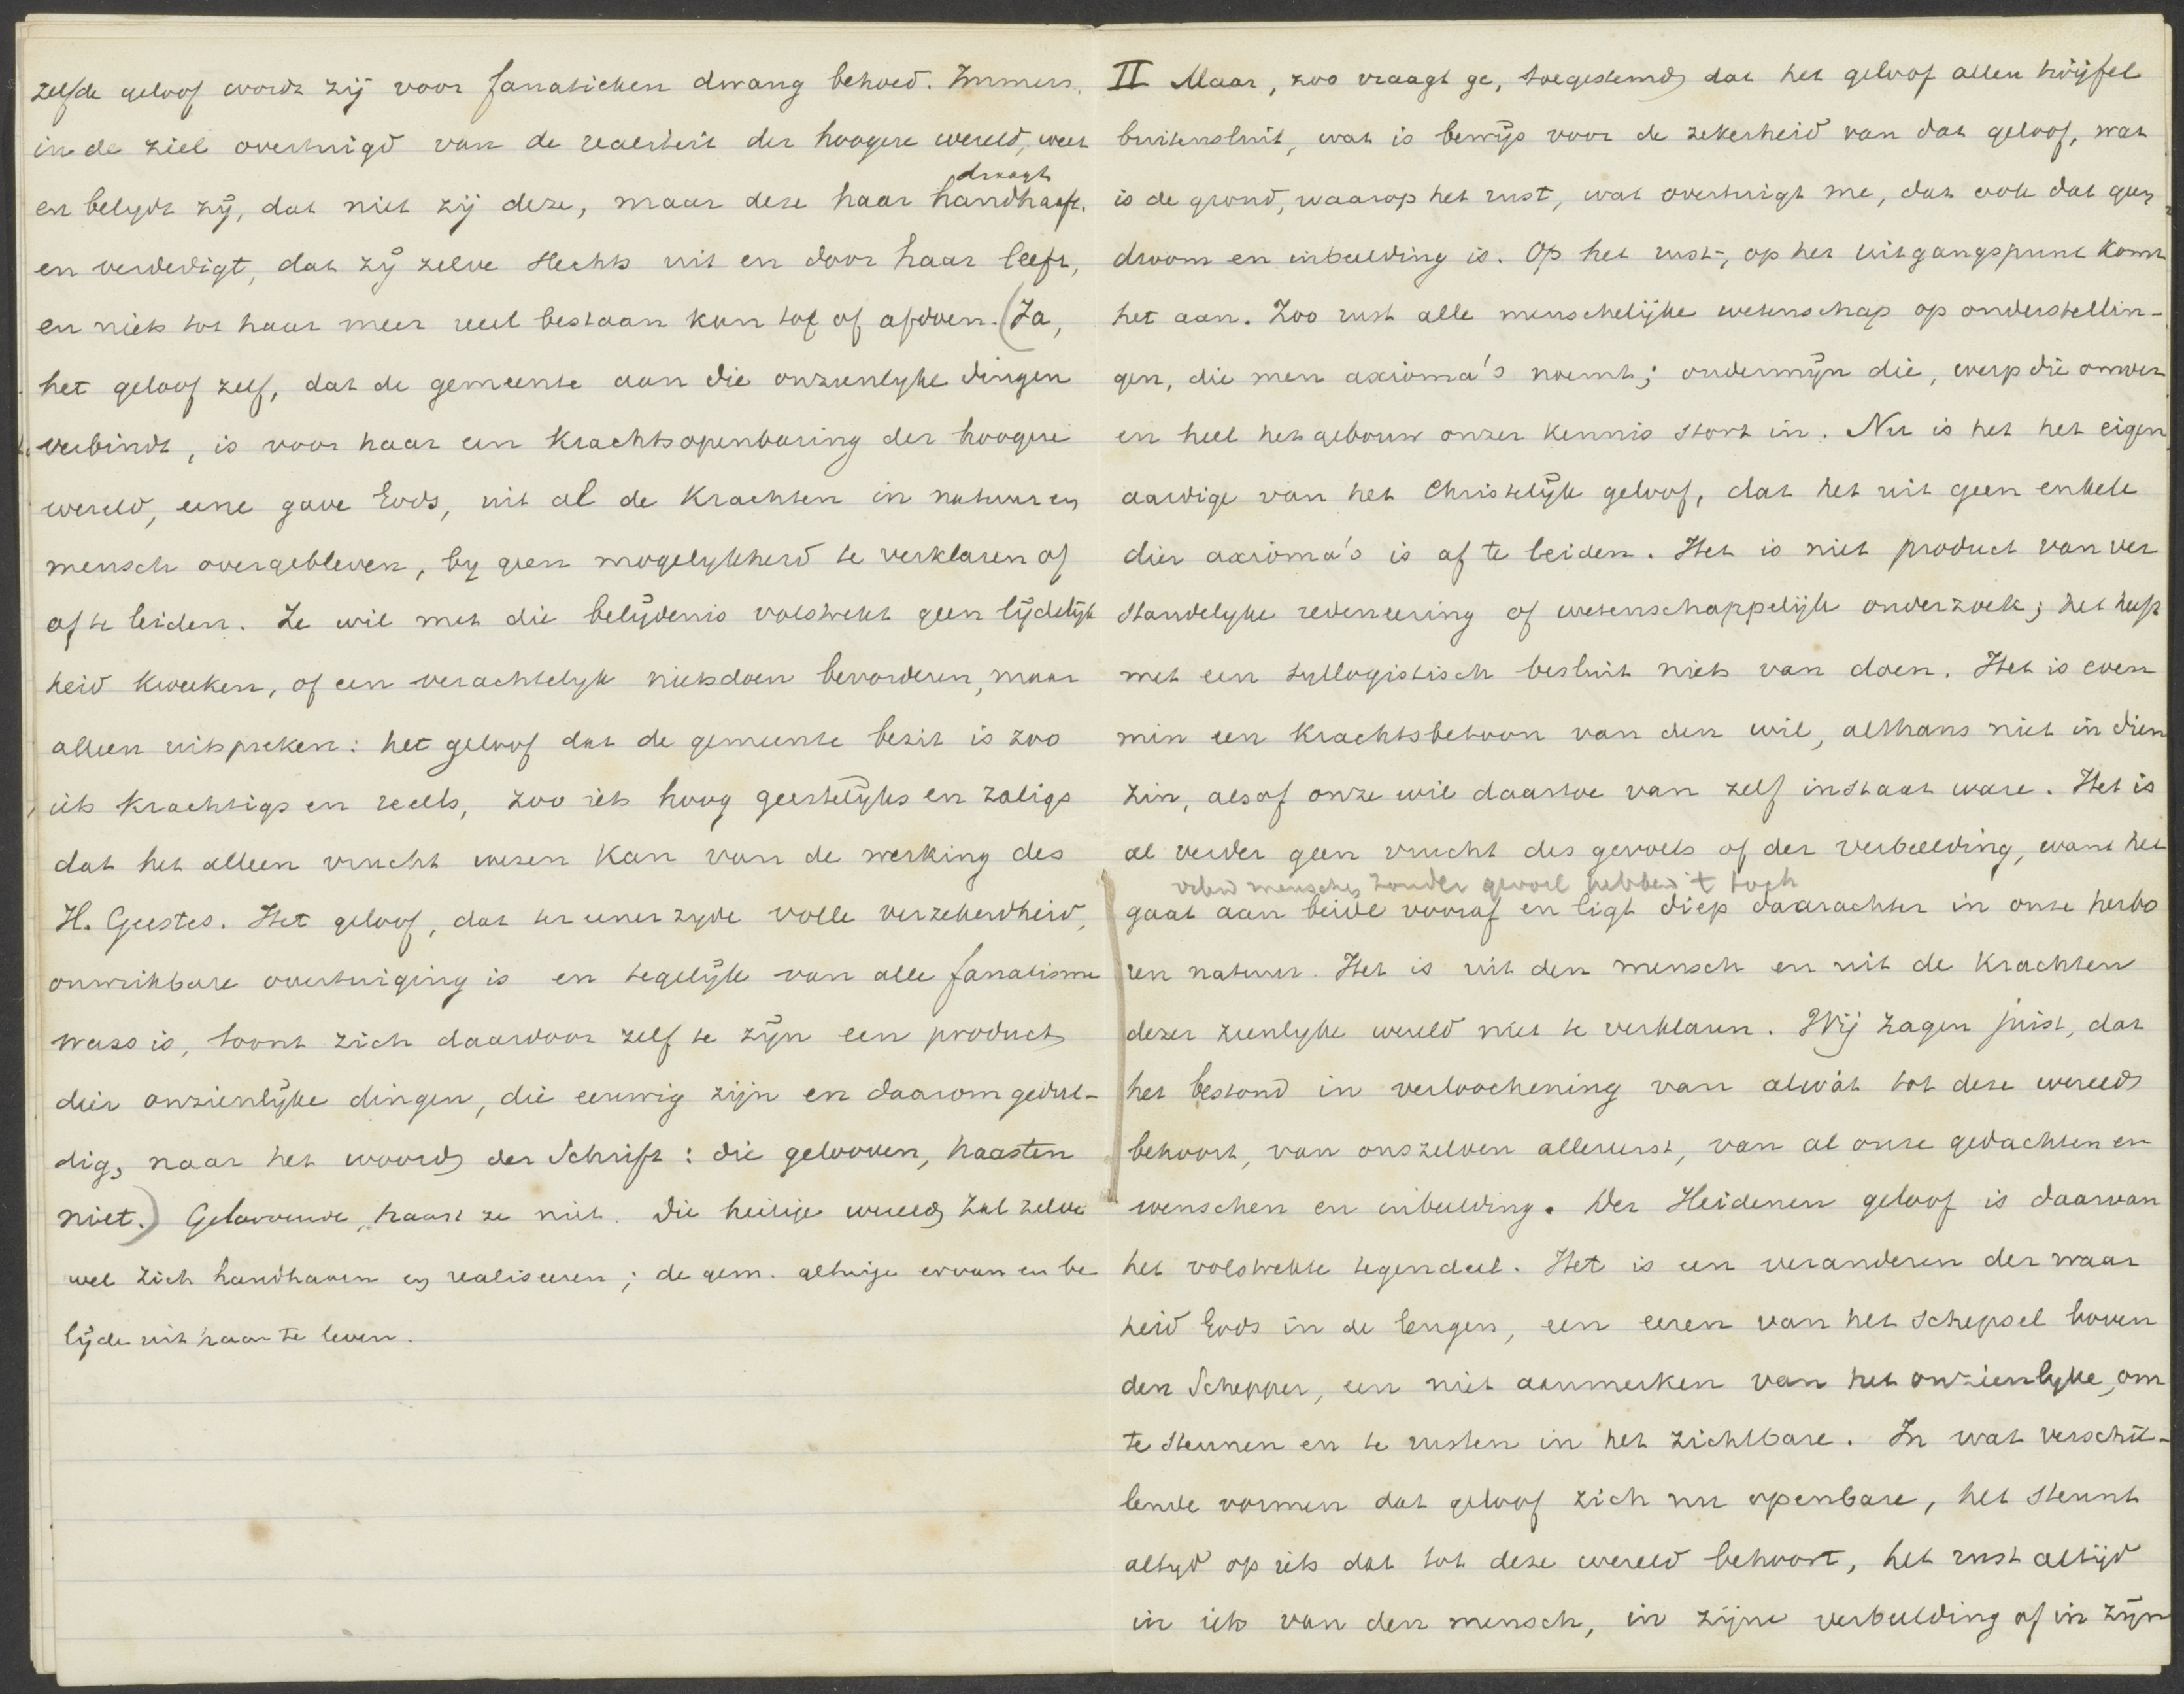 zelfde geloof wordt zij voor fanatieken dwang behoed. Immers,
in de ziel overtuigd van de realiteit der hoogere wereld, weet
en belydt zij, dat niet zij deze, maar deze haar handhaaft,
draagt
en verdedigt, dat zij zelve slechts uit en door haar leeft,
en niets tot haar meer reeel bestaan kan toe of afdoen. (Ja,
het geloof zelf, dat de gemeente aan die onzienlyke dingen
verbindt, is voor haar een krachtsopenbaring der hoogere
wereld, eene gave Gods, uit al de krachten in natuur en
mensch overgebleven, by geen mogelykheid te verklaren of
af te leiden. Ze wil met die belijdenis volstrekt geen lijdelijk
heid kweeken, of een verachtelyk nietsdoen bevorderen, maar
alleen uitspreken: het geloof dat de gemeente bezit is zoo
iets krachtigs en reeels, zoo iets hoog geestelijks en zaligs
dat het alleen vrucht wezen kan van de werking des
H. Geestes. Het geloof, dat ter eener zyde volle verzekerdheid,
onwrikbare overtuiging is en tegelijk van alle fanatisme
wars is, toont zich daardoor zelf te zijn een product
dier onzienlijke dingen, die eeuwig zijn en daarom gedul-
dig, naar het woord der Schrift: die gelooven, haasten
niet.) Geloovende, haast ze niet. Die heilige wereld zal zelve
wel zich handhaven en realiseeren; de gem. getuige ervan en be
lijde uit haar te leven.
II Maar, zoo vraagt ge, toegestemd dat het geloof allen twijfel
buitensluit, wat is bewijs voor de zekerheid van dat geloof, wat
is de grond, waarop het rust, wat overtuigt me, dat ook dat geen
droom en inbeelding is. Op het rust-, op het uitgangspunt komt
het aan. Zoo rust alle menschelijke wetenschap op onderstellin-
gen, die men axioma's noemt; ondermijn die, werp die omver
en heel het gebouw onzer kennis stort in. Nu is het het eigen
aardige van het Christelijk geloof, dat het uit geen enkele
dier axioma's is af te leiden. Het is niet product van ver
standelyke redeneering of wetenschappelijk onderzoek; het heeft
met een syllogistisch besluit niets van doen. Het is even
min een krachtsbetoon van den wil, althans niet in dien
zin, alsof onze wil daartoe van zelf in staat ware. Het is
al verder geen vrucht des gevoels of der verbeelding, want het
menschen zonder gevoel hebben 't toch
gaat aan beide vooraf en ligt diep daarachter in onze herbo
ren natuur. Het is uit den mensch en uit de krachten
dezer zienlyke wereld niet te verklaren. Wij zagen juist, dat
het bestond in verloochening van alwàt tot deze wereld
behoort, van onszelven allereerst, van al onze gedachten en
wenschen en inbeelding. Der Heidenen geloof is daarvan
het volstrekte tegendeel. Het is een veranderen der waar
heid Gods in de leugen, een eeren van het schepsel boven
den Schepper, een niet aanmerken van het onzienlyke, om
te steunen en te rusten in het zichtbare. In wat verschil-
lende vormen dat geloof zich nu openbare, het steunt
altyd op iets dat tot deze wereld behoort, het rust altijd
in iets van den mensch, in zijne verbeelding of in zijn